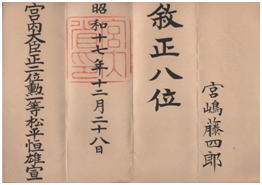 宮嶋藤四郎
敍正八位
昭和十七年十二月二十八日
宮内大臣正三位勲一等松平恒雄宣